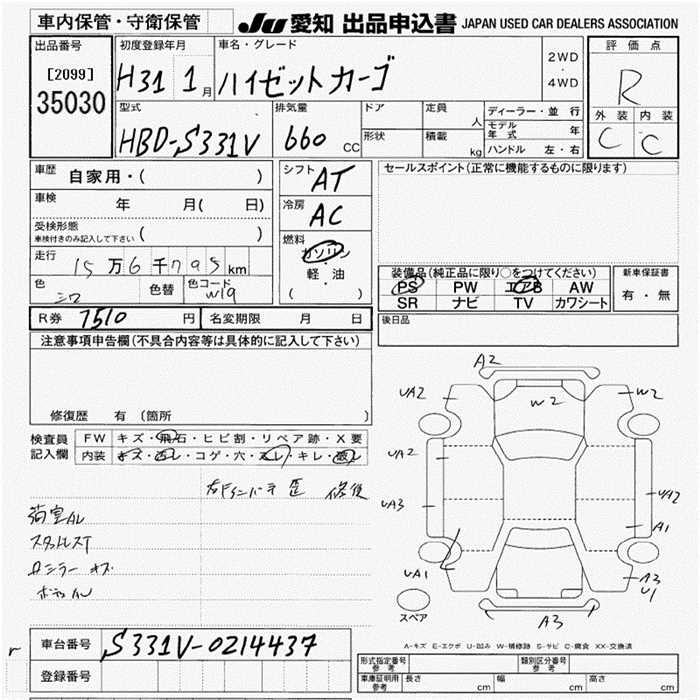 車内保管・守衛保管
JU 愛知 出品申込書 JAPAN USED CAR DEALERS ASSOCIATION
出品番号
[2099]
35030
初度登録年月
H31 1月
車名・グレード
ハイゼットカーゴ
2WD
・
4WD
評価点
R
外装 内装
C C
型式
HBD-S331V
排気量
660 CC
ドア
形状
定員 人
積載 kg
ディーラー・並行
モデル年式 年
ハンドル 左・右
車歴 自家用・( )
車検 年 月( 日)
受検形態
車検付きのみ記入して下さい ( )
走行 15万6千795km
色 シロ 色替 色コード W19
シフト AT
冷房 AC
燃料
ガソリン
・
軽・油
( )
セールスポイント(正常に機能するものに限ります)
装備品(純正品に限り○をつけてください)
PS PW エアB AW
SR ナビ TV カワシート
新車保証書
有・無
後日品
R券 7510 円 名変期限 月 日
注意事項申告欄(不具合内容等は具体的に記入して下さい)
修復歴 有 (箇所 )
検査員記入欄
FW キズ・飛石・ヒビ割・リペア跡・X要
内装 キズ・汚レ・コゲ・穴・スレ・キレ・破レ
修復
A2
UA2
W2
W2
UA2
UA3
UA2
A1
UA1
A3
U1
A3
スペア
A-キズ E-エクボ U-凹み W-補修跡 S-サビ C-腐食 XX-交換済
車台番号 S331V-0214437
登録番号
形式指定番号 参考
類別区分番号 参考
車庫証明用 参考 長さ cm 幅 cm 高さ cm